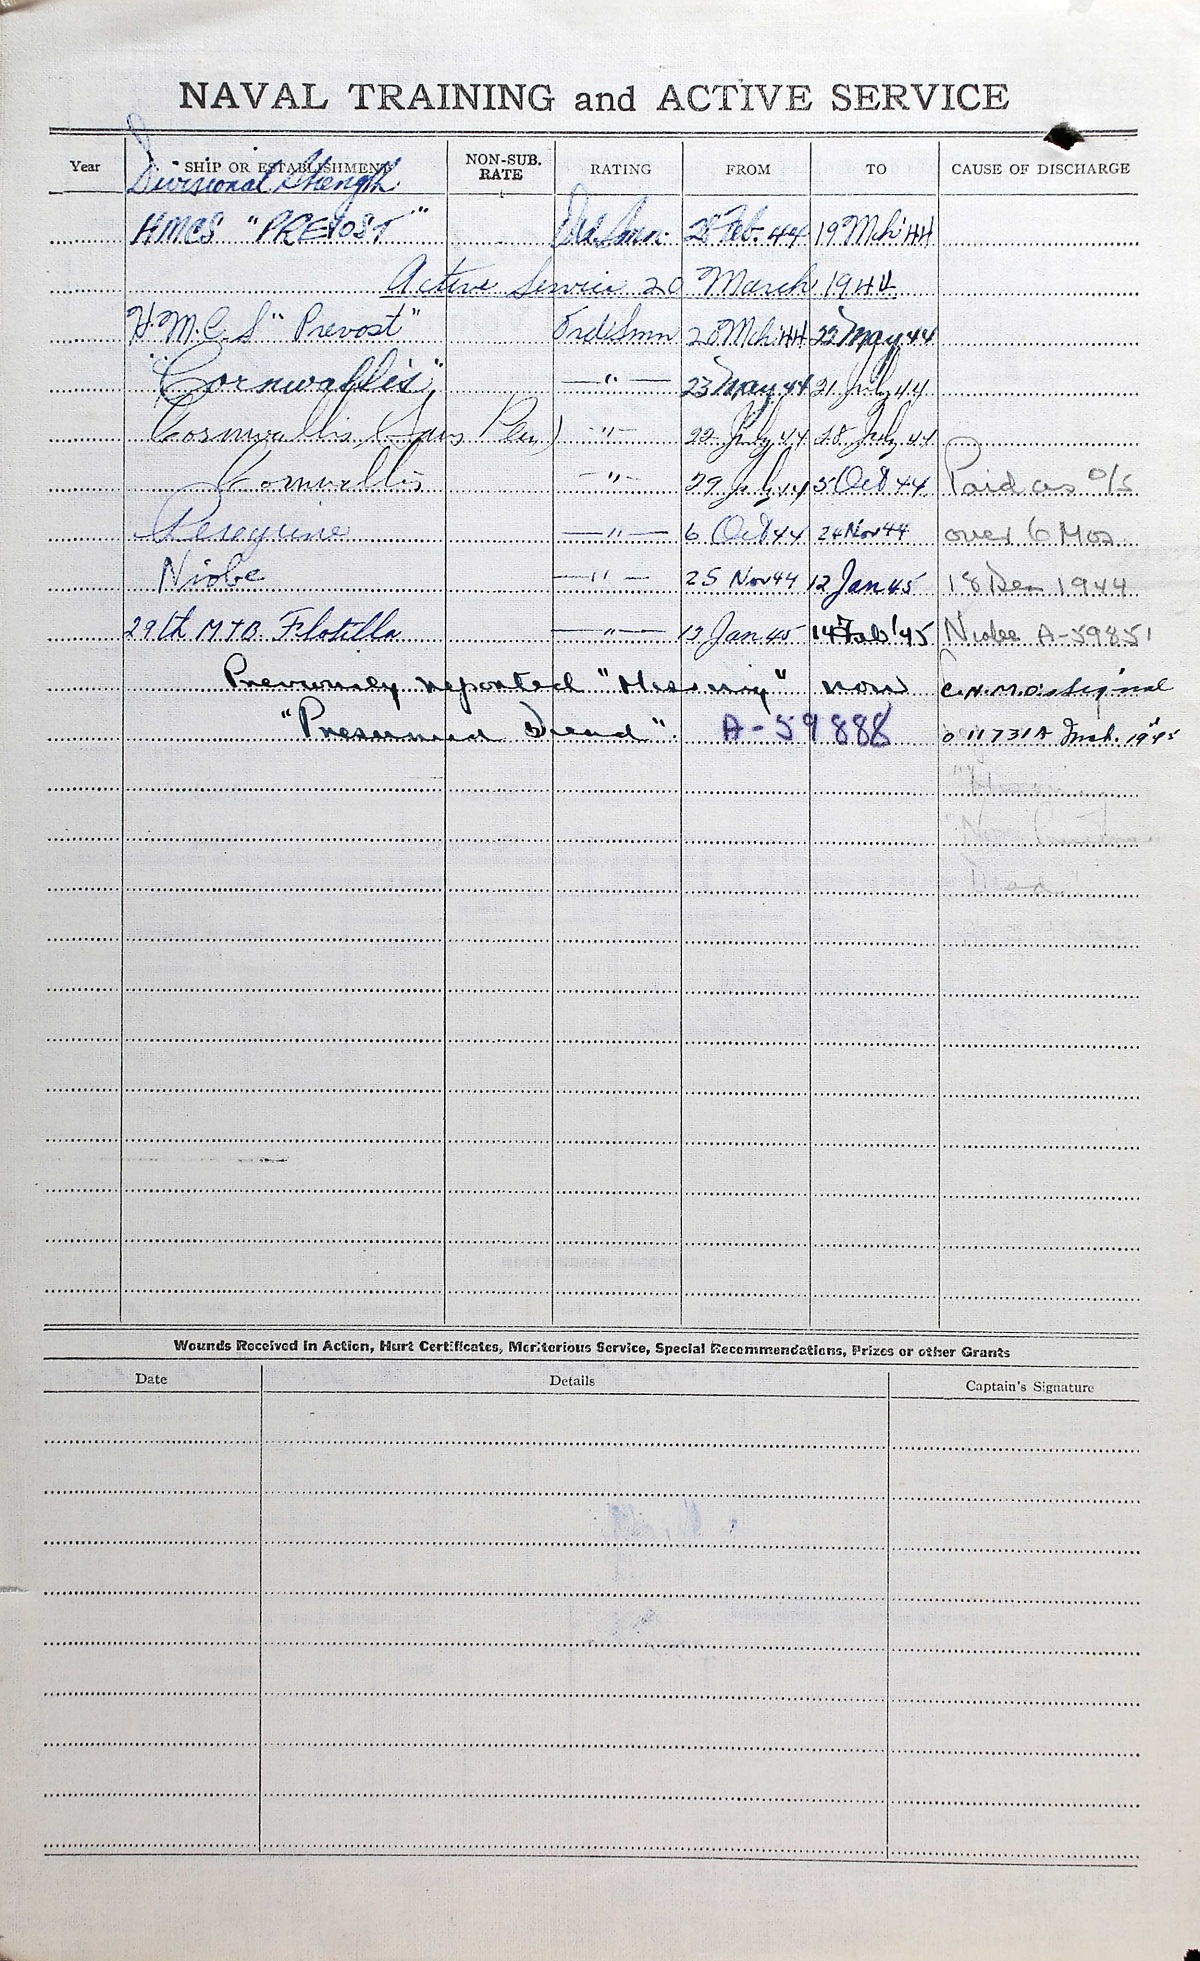 NAVAL TRAINING and ACTIVE SERVICE
Year SHIP OR ESTABLISHMENT NON-SUB. RATE RATING FROM TO CAUSE OF DISCHARGE
Divisional Strength
HMCS "PREVOST" Ord Smn. 28 Feb. 44 19 Mch 44
Active Service 20 March 1944
H.M.C.S "Prevost" Ord Smn 20 Mch 44 22 May 44
"Cornwallis" —"— 23 May 44 21 July 44
Cornwallis ( —"— 22 July 44 28 July 44
Cornwallis —"— 29 July 44 5 Oct 44 Paid as O/S
Peregrine —"— 6 Oct 44 24 Nov 44 over 6 Mos
Niobe —"— 25 Nov 44 12 Jan 45 18 Dec 1944
29th MTB. Flotilla —"— 13 Jan 45 14 Feb '45 Niobe A-59851
Previously reported "Missing" now C.N.M.O's Signal
"Presumed Dead". A-59888 11731A Mch. 1945
Dead"
Wounds Received in Action, Hurt Certificates, Meritorious Service, Special Recommendations, Prizes or other Grants
Date Details Captain's Signature